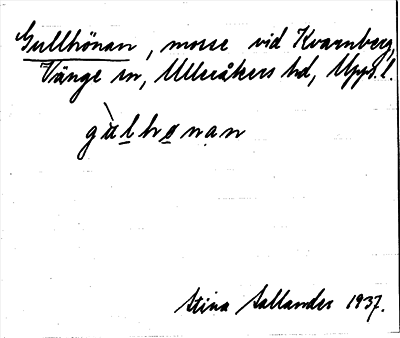 Gullhönan, mosse vid Kvarnberg,
Vänge sn, Ulleråkers hd, Upps. l.
gùlhönan
Stina Sallander 1937.